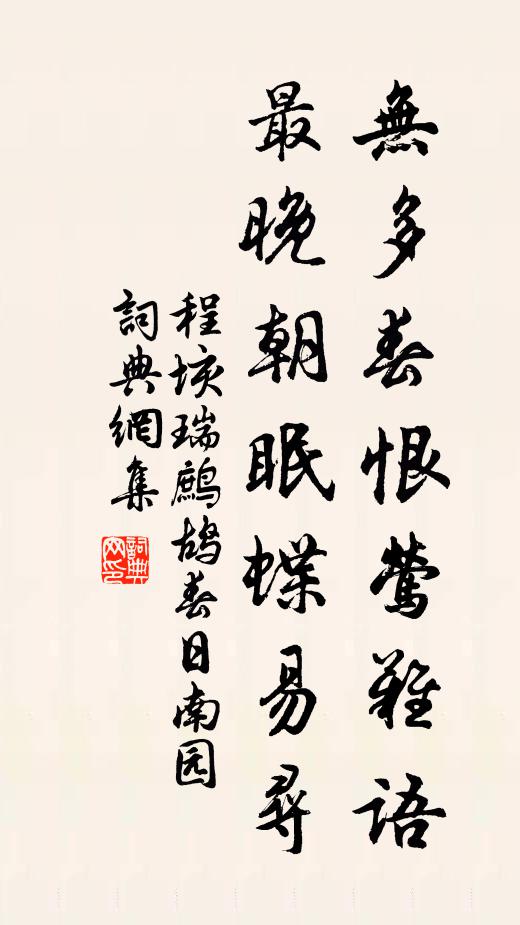 無多春恨鶯難語
最晚朝眠蝶易尋
程垓瑞鷓鴣春日南园
詞典網集
詞典网印